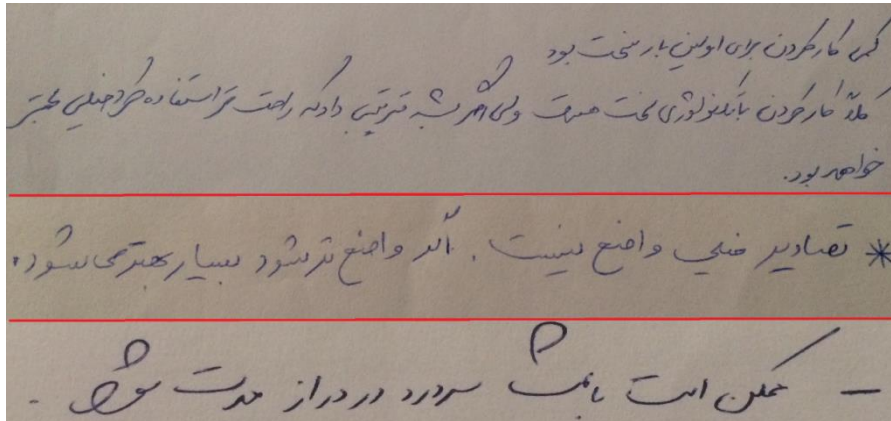 کمی کار کردن برای اولین بار سخت بود
کلاً کار کردن با تکنولوژی سخت هست ولی اگر بشه ترتیبی داد که راحت تر استفاده کرد خیلی بهتر
خواهد بود.
* تصاویر خیلی واضح نیست. اگر واضح تر شود بسیار بهتر می شود.
– ممکن است باعث سردرد در دراز مدت شود.